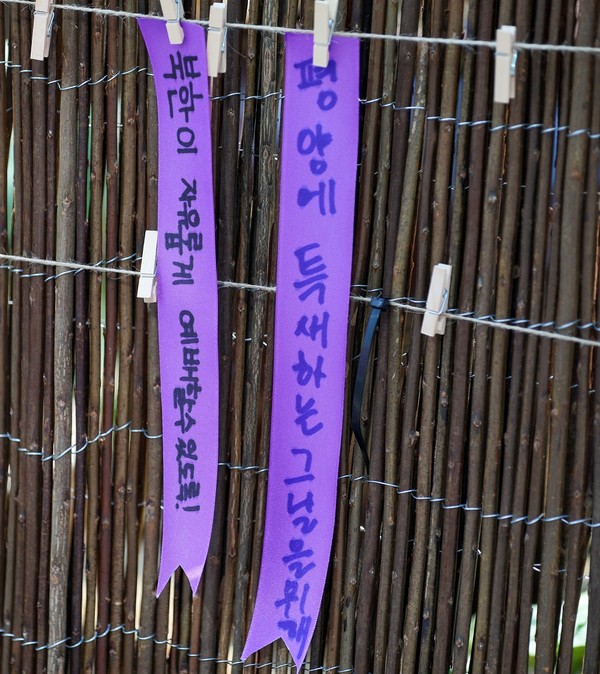 북한이 자유롭게 예배할수있도록!
평양도 특새하는 그날을위해